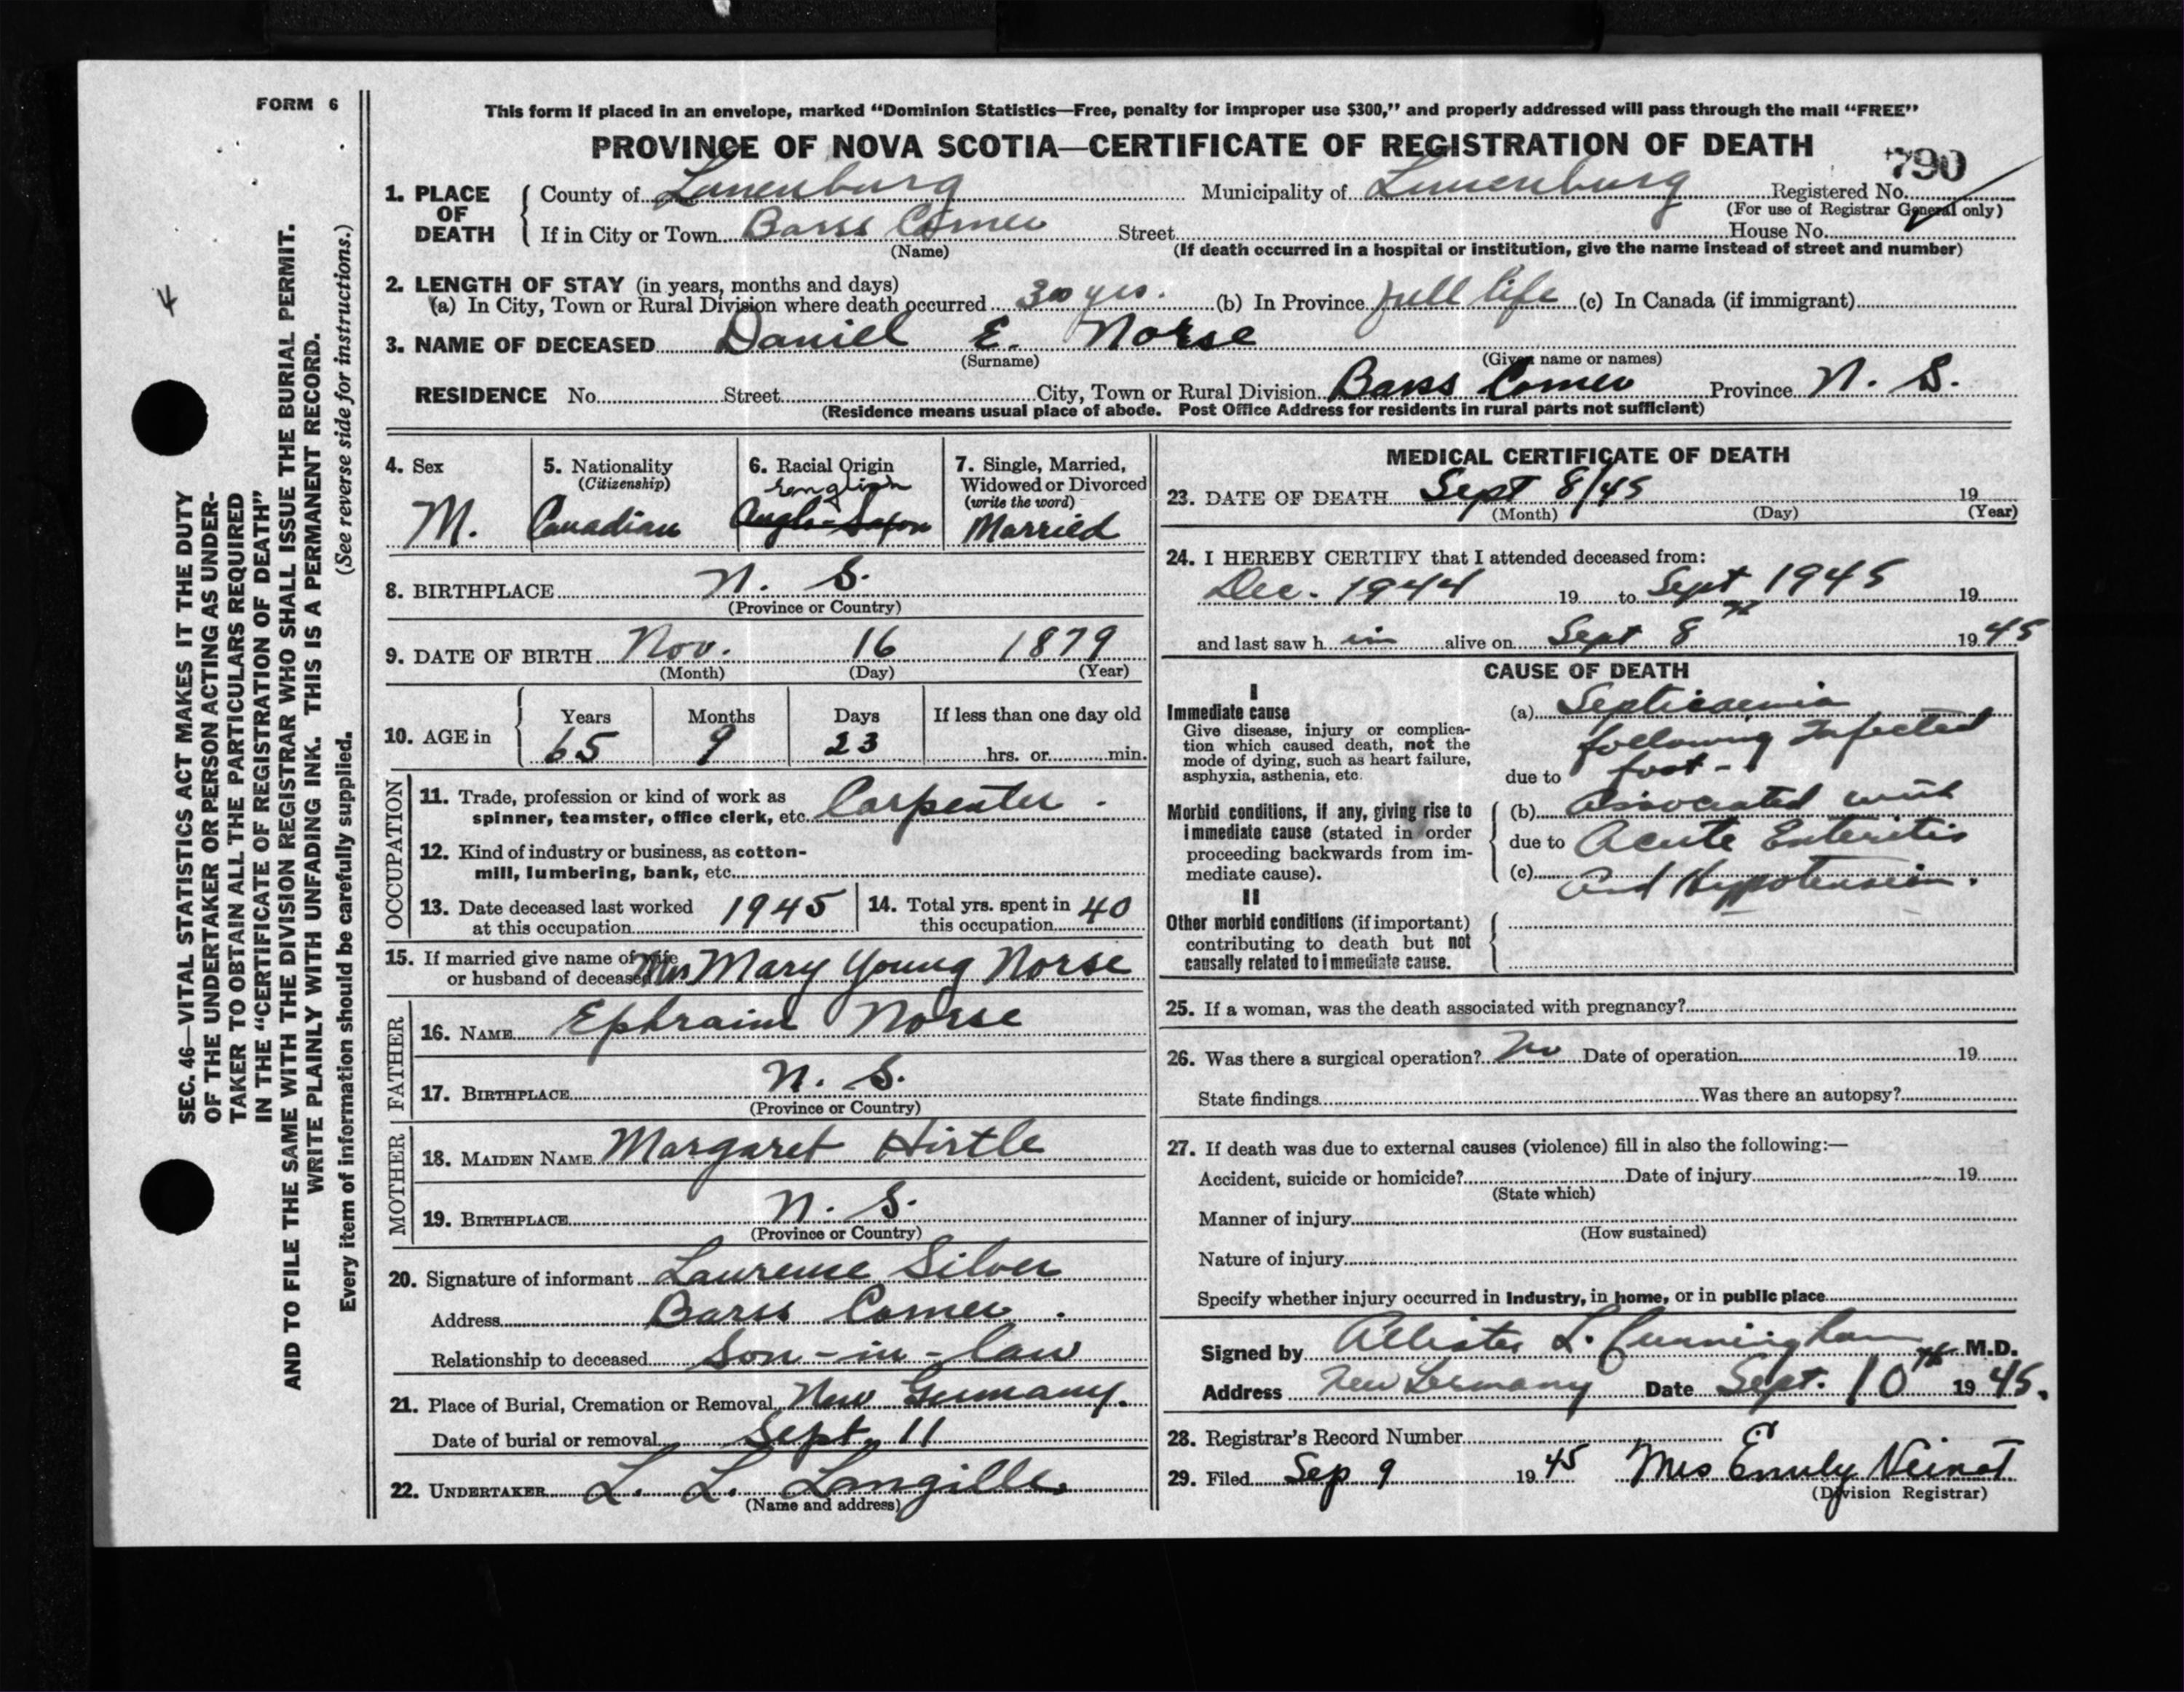 FORM 6
This form if placed in an envelope, marked “Dominion Statistics—Free, penalty for improper use $300,” and properly addressed will pass through the mail “FREE”
PROVINCE OF NOVA SCOTIA—CERTIFICATE OF REGISTRATION OF DEATH
790
1. PLACE OF DEATH County of Lunenburg Municipality of Lunenburg Registered No.
(For use of Registrar General only)
If in City or Town Barss Corner Street House No.
(Name) (If death occurred in a hospital or institution, give the name instead of street and number)
2. LENGTH OF STAY (in years, months and days)
(a) In City, Town or Rural Division where death occurred 30 yrs. (b) In Province full life (c) In Canada (if immigrant)
3. NAME OF DECEASED Daniel E. Norse
(Surname) (Given name or names)
RESIDENCE No. Street City, Town or Rural Division Barss Corner Province N. S.
(Residence means usual place of abode. Post Office Address for residents in rural parts not sufficient)
4. Sex M.
5. Nationality (Citizenship) Canadian
6. Racial Origin English Anglo-Saxon
7. Single, Married, Widowed or Divorced (write the word) Married
8. BIRTHPLACE N. S.
(Province or Country)
9. DATE OF BIRTH Nov. 16 1879
(Month) (Day) (Year)
10. AGE in Years Months Days If less than one day old
65 9 23 hrs. or min.
OCCUPATION
11. Trade, profession or kind of work as spinner, teamster, office clerk, etc. Carpenter.
12. Kind of industry or business, as cotton-mill, lumbering, bank, etc.
13. Date deceased last worked at this occupation 1945
14. Total yrs. spent in this occupation 40
15. If married give name of wife or husband of deceased Mrs Mary Young Norse
FATHER
16. NAME Ephraim Norse
17. BIRTHPLACE N. S.
(Province or Country)
MOTHER
18. MAIDEN NAME Margaret Hirtle
19. BIRTHPLACE N. S.
(Province or Country)
20. Signature of informant Laurence Silver
Address Barss Corner.
Relationship to deceased Son-in-law
21. Place of Burial, Cremation or Removal New Germany.
Date of burial or removal Sept. 11
22. UNDERTAKER L. L. Langille.
(Name and address)
MEDICAL CERTIFICATE OF DEATH
23. DATE OF DEATH Sept 8/45 19
(Month) (Day) (Year)
24. I HEREBY CERTIFY that I attended deceased from:
Dec. 1944 19 to Sept 1945 19
and last saw h im alive on Sept 8th 1945
CAUSE OF DEATH
I
Immediate cause
Give disease, injury or complication which caused death, not the mode of dying, such as heart failure, asphyxia, asthenia, etc.
(a) Septicaemia
following Infected
due to foot -
Morbid conditions, if any, giving rise to immediate cause (stated in order proceeding backwards from immediate cause).
(b) Associated with
due to Acute Enteritis
(c) And Hypotension.
II
Other morbid conditions (if important) contributing to death but not causally related to immediate cause.
25. If a woman, was the death associated with pregnancy?
26. Was there a surgical operation? No Date of operation 19
State findings Was there an autopsy?
27. If death was due to external causes (violence) fill in also the following:—
Accident, suicide or homicide? Date of injury 19
(State which)
Manner of injury
(How sustained)
Nature of injury
Specify whether injury occurred in industry, in home, or in public place
Signed by Allister L. Cunningham M.D.
Address New Germany Date Sept. 10th 1945.
28. Registrar's Record Number
29. Filed Sep 9 1945 Mrs Emily Veinot
(Division Registrar)
SEC. 46—VITAL STATISTICS ACT MAKES IT THE DUTY
OF THE UNDERTAKER OR PERSON ACTING AS UNDER-
TAKER TO OBTAIN ALL THE PARTICULARS REQUIRED
IN THE “CERTIFICATE OF REGISTRATION OF DEATH”
AND TO FILE THE SAME WITH THE DIVISION REGISTRAR WHO SHALL ISSUE THE BURIAL PERMIT.
WRITE PLAINLY WITH UNFADING INK. THIS IS A PERMANENT RECORD.
Every item of information should be carefully supplied. (See reverse side for instructions.)